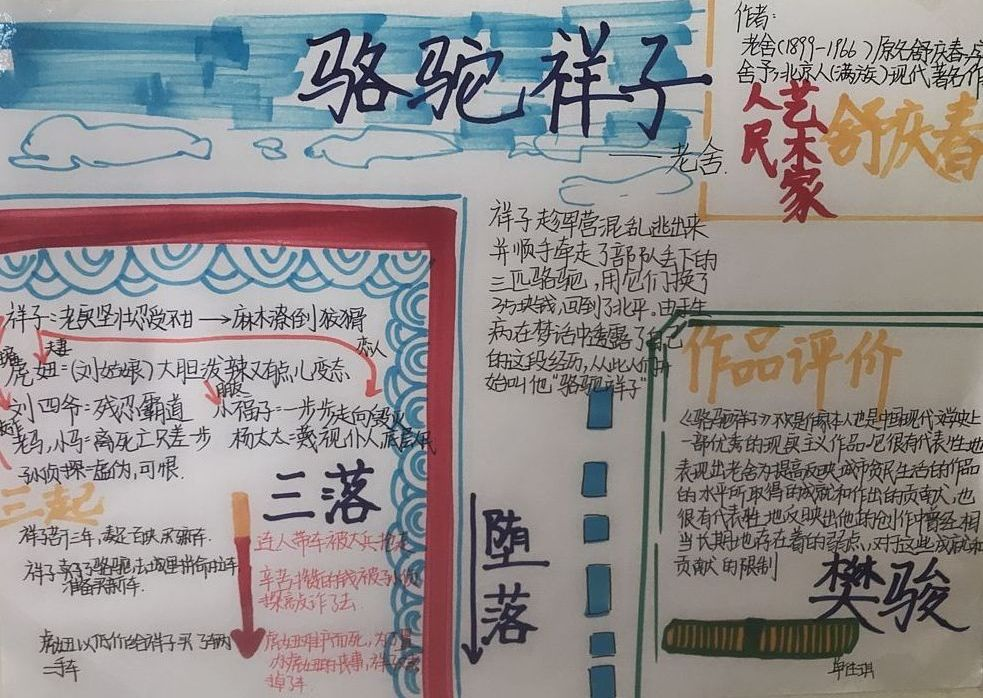 骆驼祥子
——老舍.
作者:
老舍(1899-1966)原名舒庆春,字
舍予;北京人(满族)现代著名作
人民
艺术家
舒庆春
祥子趁军营混乱逃出来
并顺手牵走了部队丢下的
三匹骆驼,用它们换了
35块钱,回到了北平.由于生
病在梦话中透露了自己
的这段经历,从此人们开
始叫他"骆驼祥子"
祥子:老实坚壮忍爱不甘→麻木潦倒狡猾
夫妻
恋人
虎妞:(刘的娘)大胆泼辣又有点儿变态
刘四爷:残忍霸道
小福子:一步步走向毁灭
老马,小马:离死亡只差一步
杨太太:蔑视仆人
孙侦探:虚伪,可恨.
三起
祥子苦干三年,凑足百块,买新车.
祥子卖了骆驼,
准备买新车.
虎妞以低价给祥子买了车辆
二手车
三落
连人带车被大兵抢走
辛苦攒的钱被孙侦
探敲诈了去.
虎妞难产而死,为了置
办虎妞的丧事,祥子
掉了车.
堕落
作品评价
《骆驼祥子》不仅是作家本人也是中国现代文学史上
一部优秀的现实主义作品.它很有代表性地
表现出老舍为提高反映城市贫民生活的作品
的水平所取得的成就和作出的贡献,也
很有代表性地反映出他的创作中曾经相
当长期地存在着的弱点,对于这些成就和
贡献的限制
樊骏